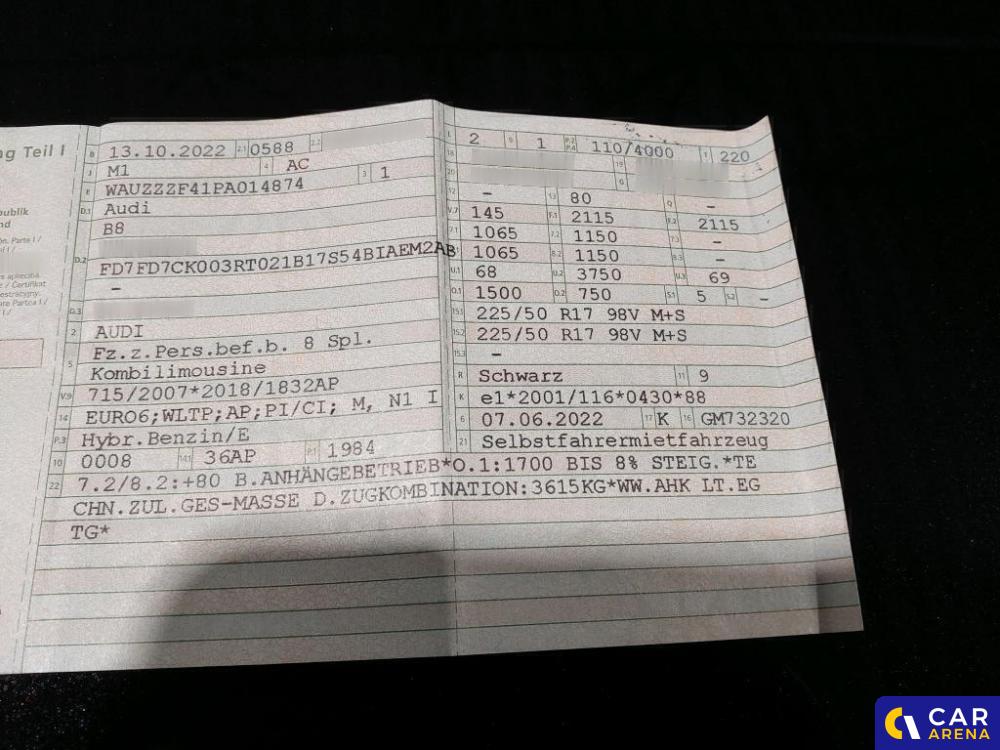 ng Teil I
B 13.10.2022 2.1 0588 2.2
J M1 4 AC
E WAUZZZF41PA014874 3 1
D.1 Audi
B8
D.2
FD7FD7CK003RT021B17S54BIAEM2AB
–
D.3
2 AUDI
5 Fz.z.Pers.bef.b. 8 Spl.
Kombilimousine
V.9 715/2007*2018/1832AP
14 EURO6;WLTP;AP;PI/CI; M, N1 I
P.3 Hybr.Benzin/E
10 0008 14.1 36AP P.1 1984
L 2 9 1 P.2 P.4 110/4000 T 220
18 19
20 G
12 – 13 80 Q –
V.7 145 F.1 2115 F.2 2115
7.1 1065 7.2 1150 7.3 –
8.1 1065 8.2 1150 8.3 –
U.1 68 U.2 3750 U.3 69
O.1 1500 O.2 750 S.1 5 S.2 –
15.1 225/50 R17 98V M+S
15.2 225/50 R17 98V M+S
15.3 –
R Schwarz 11 9
K e1*2001/116*0430*88
6 07.06.2022 17 K 16 GM732320
21 Selbstfahrermietfahrzeug
22 7.2/8.2:+80 B.ANHÄNGEBETRIEB*O.1:1700 BIS 8% STEIG.*TE
CHN.ZUL.GES-MASSE D.ZUGKOMBINATION:3615KG*WW.AHK LT.EG
TG*
CAR
ARENA